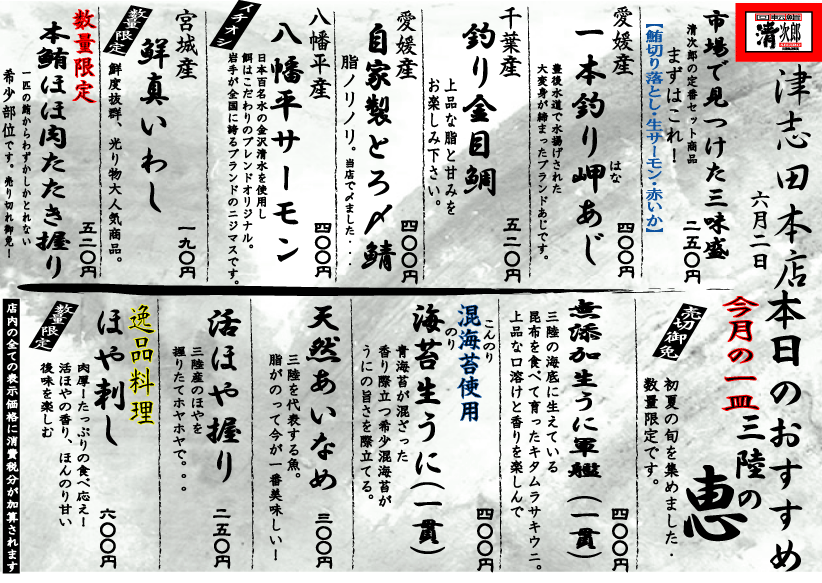 清次郎
津志田本店
六月二日
本日のおすすめ
市場で見つけた三味盛
清次郎の定番セット商品
まずはこれ！
【鮪切り落とし・生サーモン・赤いか】
二五〇円
愛媛産
一本釣り岬あじ
はな
豊後水道で水揚げされた
大変身が締まったブランドあじです。
四〇〇円
千葉産
釣り金目鯛
上品な脂と甘みを
お楽しみ下さい。
五二〇円
愛媛産
自家製とろ〆鯖
脂ノリノリ。当店で〆ました・・・
四〇〇円
イチオシ
八幡平産
八幡平サーモン
日本百名水の金沢清水を使用し
餌はこだわりのブレンドオリジナル。
岩手が全国に誇るブランドのニジマスです。
四〇〇円
数量限定
宮城産
鮮真いわし
鮮度抜群、光り物大人気商品。
一九〇円
数量限定
本鮪ほほ肉たたき握り
一匹の鮪からわずかしかとれない
希少部位です。売り切れ御免！
五二〇円
今月の一皿
三陸の
恵
売切御免
初夏の旬を集めました・
数量限定です。
無添加生うに軍艦(一貫)
三陸の海底に生えている
昆布を食べて育ったキタムラサキウニ。
上品な口溶けと香りを楽しんで
四〇〇円
こんのり
混海苔使用
海苔生うに(一貫)
のり
青海苔が混ざった
香り際立つ希少混海苔が
うにの旨さを際立てる。
四〇〇円
天然あいなめ
三陸を代表する魚。
脂がのって今が一番美味しい！
三〇〇円
活ほや握り
三陸産のほやを
握りたてホヤホヤで。。。
二五〇円
逸品料理
数量限定
ほや刺し
肉厚！たっぷりの食べ応え！
活ほやの香り、ほんのり甘い
後味を楽しむ
六〇〇円
店内の全ての表示価格に消費税分が加算されます